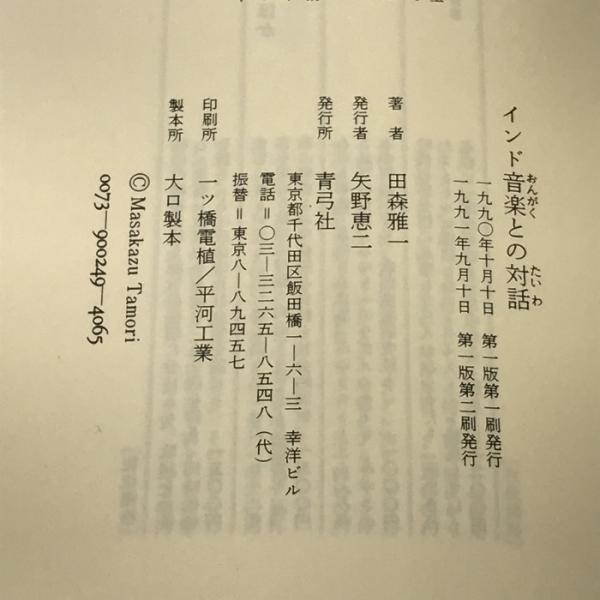 インド音楽との対話
おんがく
たいわ
一九九〇年十月十日 第一版第一刷発行
一九九一年九月十日 第一版第二刷発行
著者 田森雅一
発行者 矢野恵二
発行所 青弓社
東京都千代田区飯田橋一―六―三 幸洋ビル
電話=〇三―三二六五―八五四八(代)
振替=東京八―八九四五七
印刷所 一ツ橋電植/平河工業
製本所 大口製本
© Masakazu Tamori
0073—900249—4065